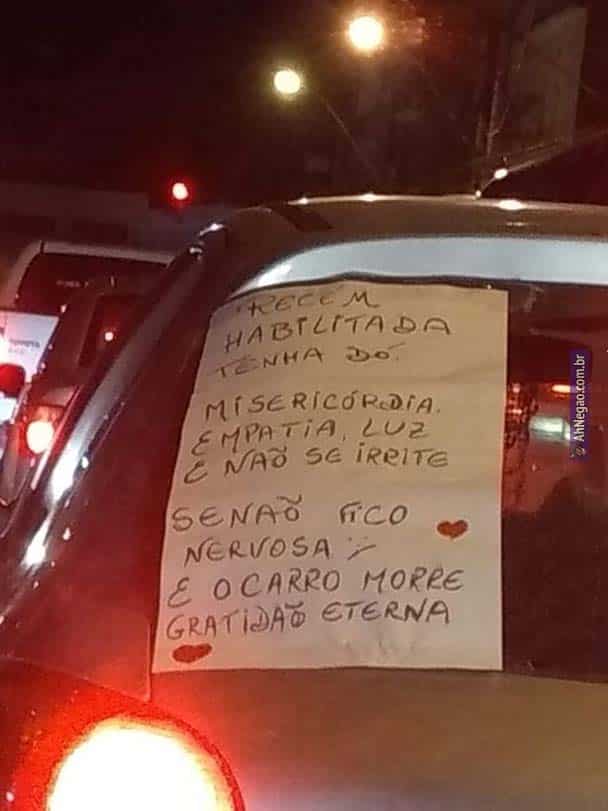 RECÉM
HABILITADA
TENHA DÓ.
MISERICÓRDIA.
EMPATIA, LUZ
E NÃO SE IRRITE
SENAÕ FICO
NERVOSA :/
E O CARRO MORRE
GRATIDAÕ ETERNA
© AhNegao.com.br